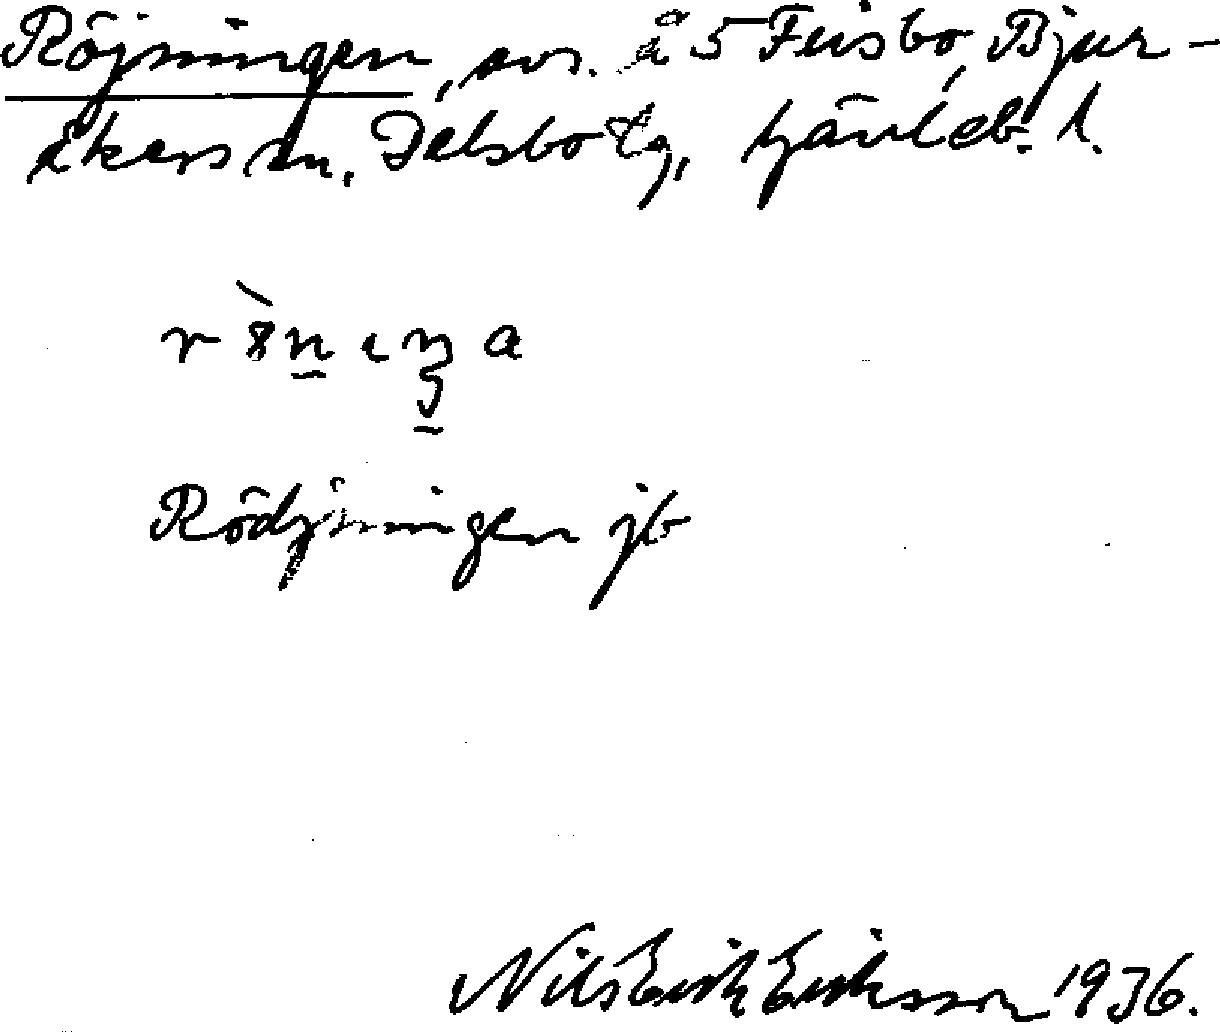 Röjningen, avs. å 5 Feisbo, Bjur-
åkers sn. Delsbo tg, Gävleb. l.
Rödjningen jb
Nils Erik Eriksson 1936.